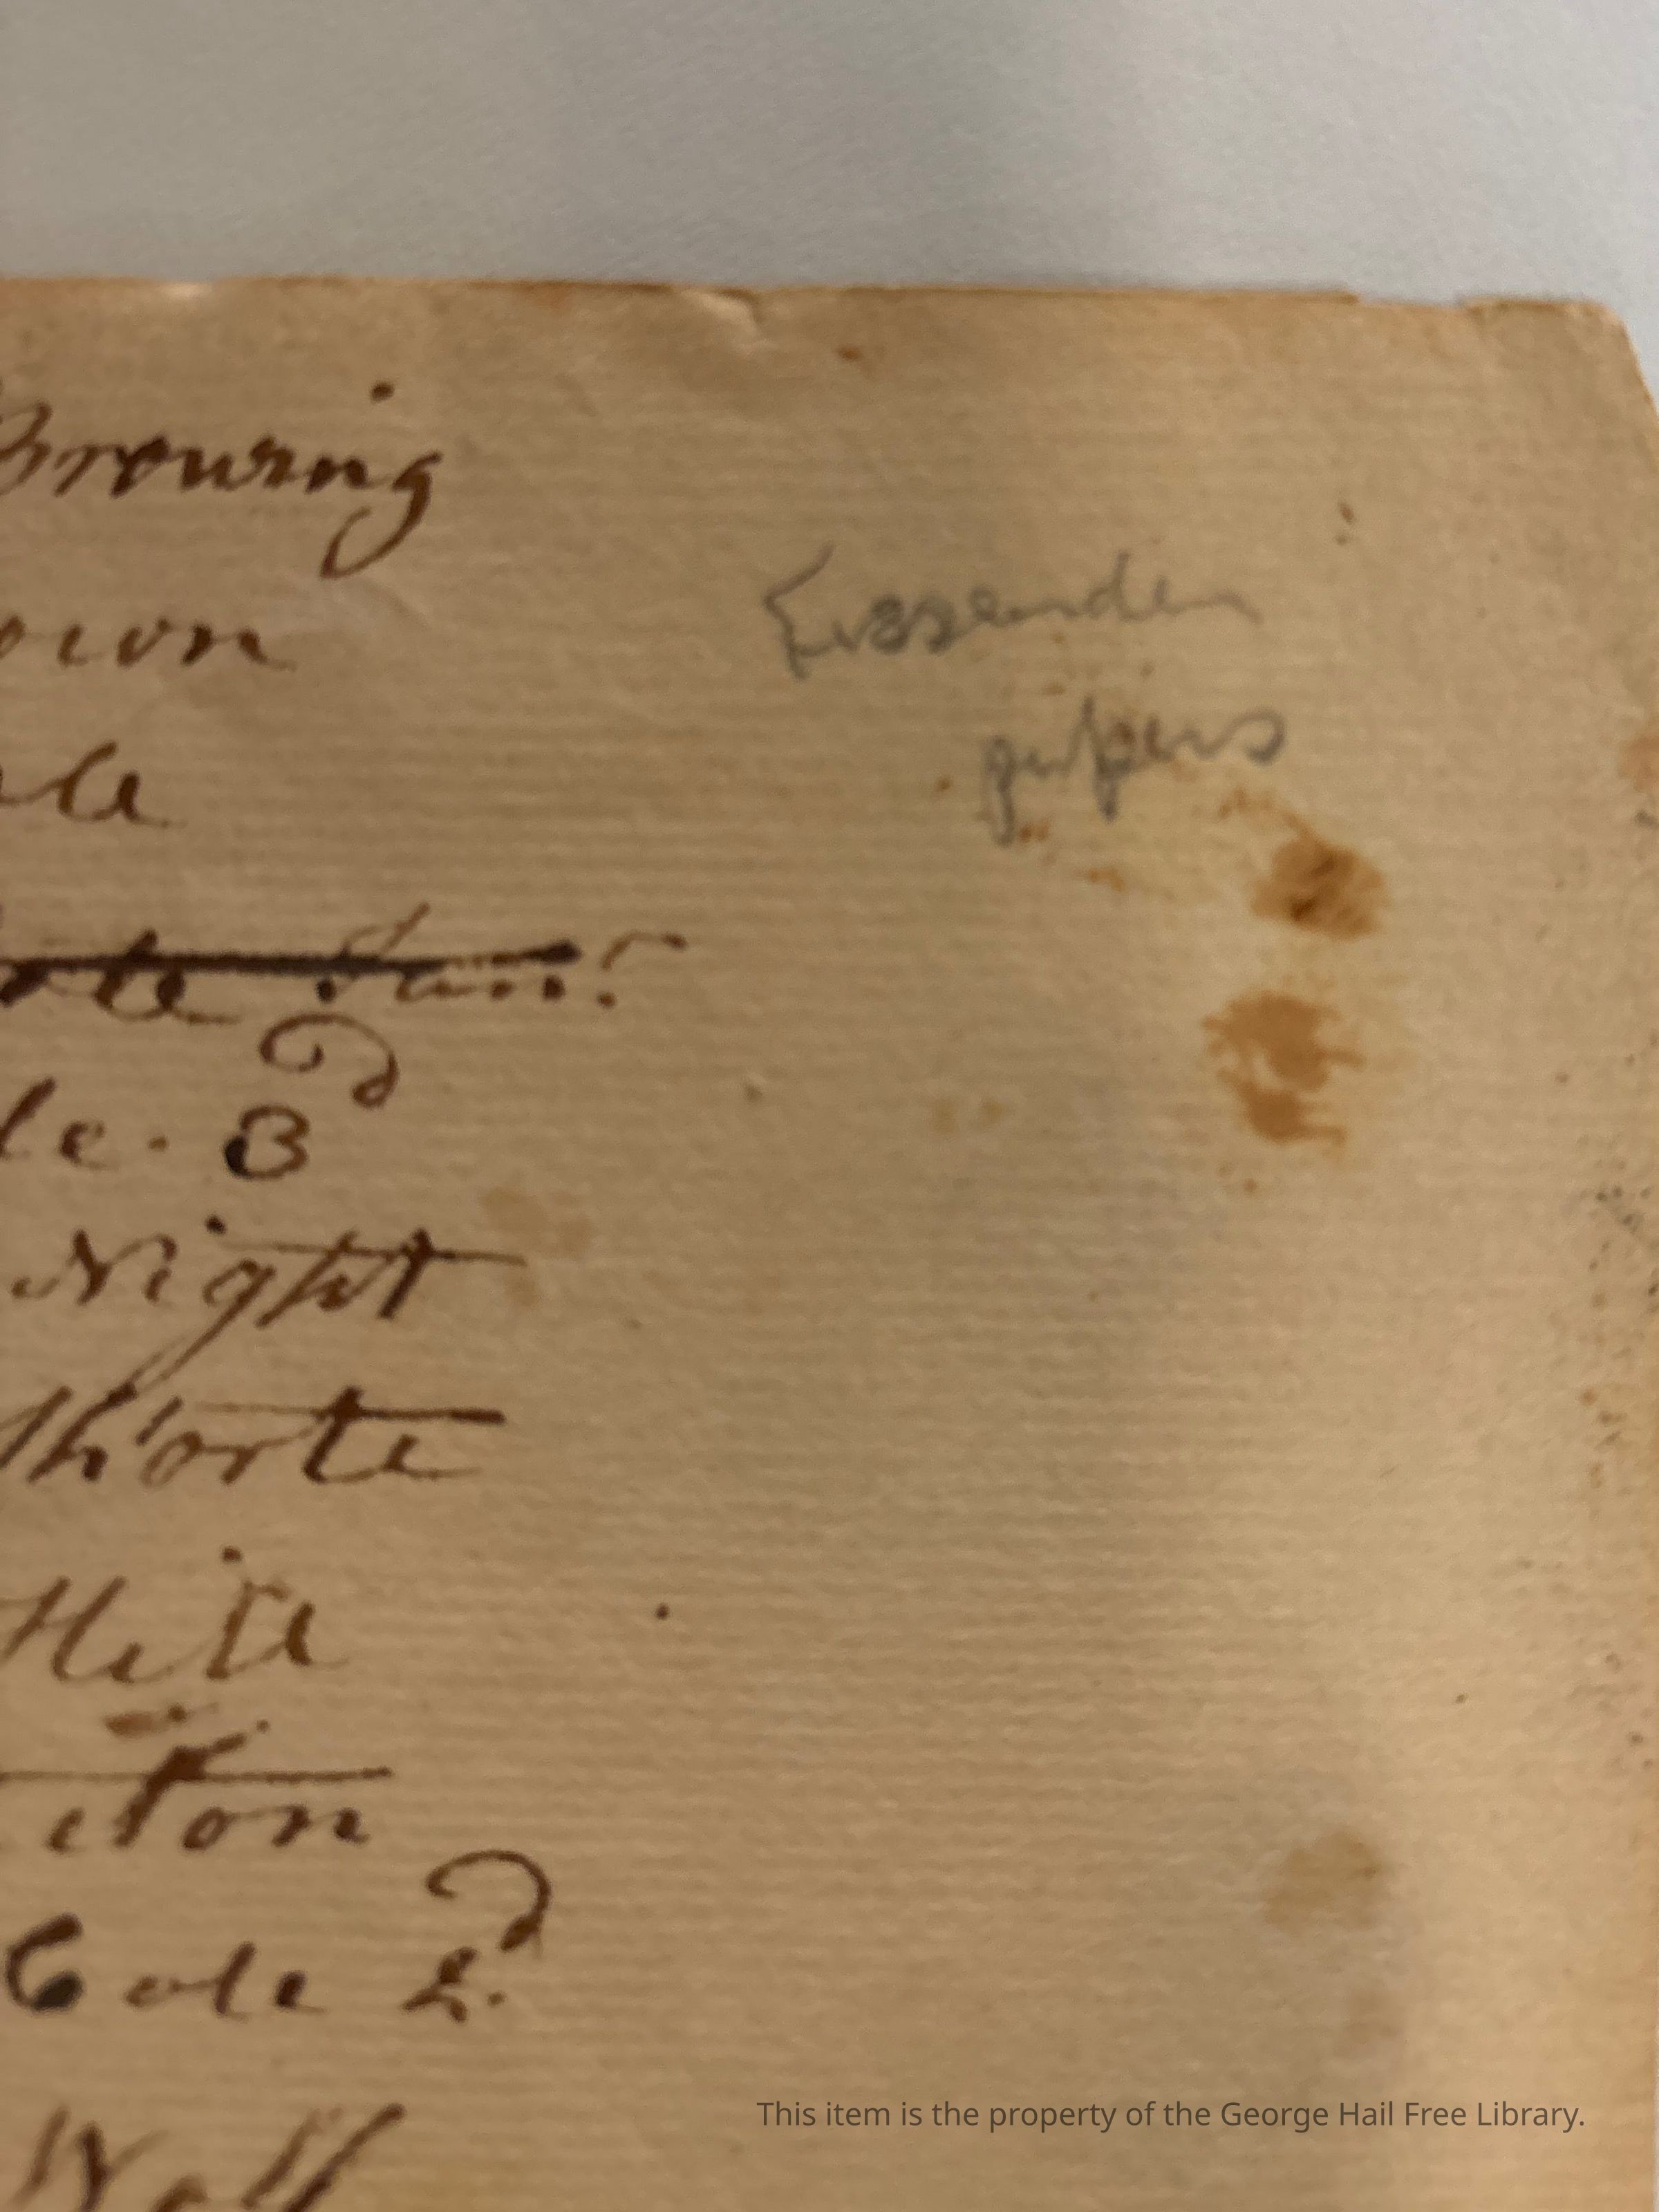 Browning
own
ole
orte Junr
le. 3d
Night
Thorte
Hill
eton
Cole 2d
Fessenden
papers
This item is the property of the George Hail Free Library.